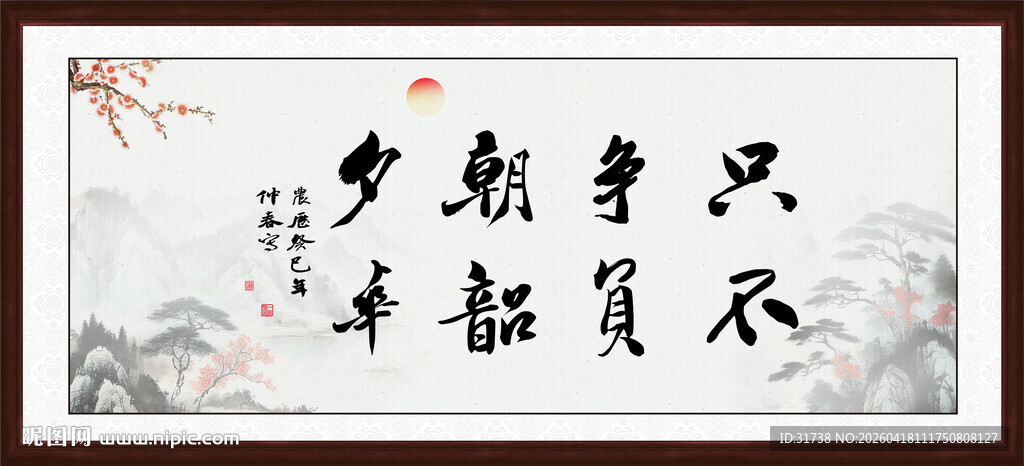 只争朝夕
不負韶華
農歷癸巳年
仲春写
昵图网 www.nipic.com
ID:31738 NO:20260418111750808127